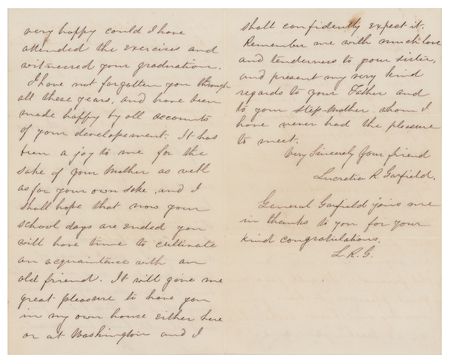 very happy could I have
attended the exercises and
witnessed your graduation.
I have not forgotten you through
all these years, and have been
made happy by all accounts
of your developement. It has
been a joy to me for the
sake of your Mother as well
as for your own sake, and I
shall hope that now your
school days are ended you
will have time to cultivate
an acquaintance with an
old friend. It will give me
great pleasure to have you
in my own house either here
or at Washington and I
shall confidently expect it.
Remember me with much love
and tenderness to your sisters,
and present my very kind
regards to your Father and
to your Step-Mother whom I
have never had the pleasure
to meet.
Very Sincerely Your friend
Lucretia R Garfield.
General Garfield joins me
in thanks to you for your
kind congratulations.
L. R. G.